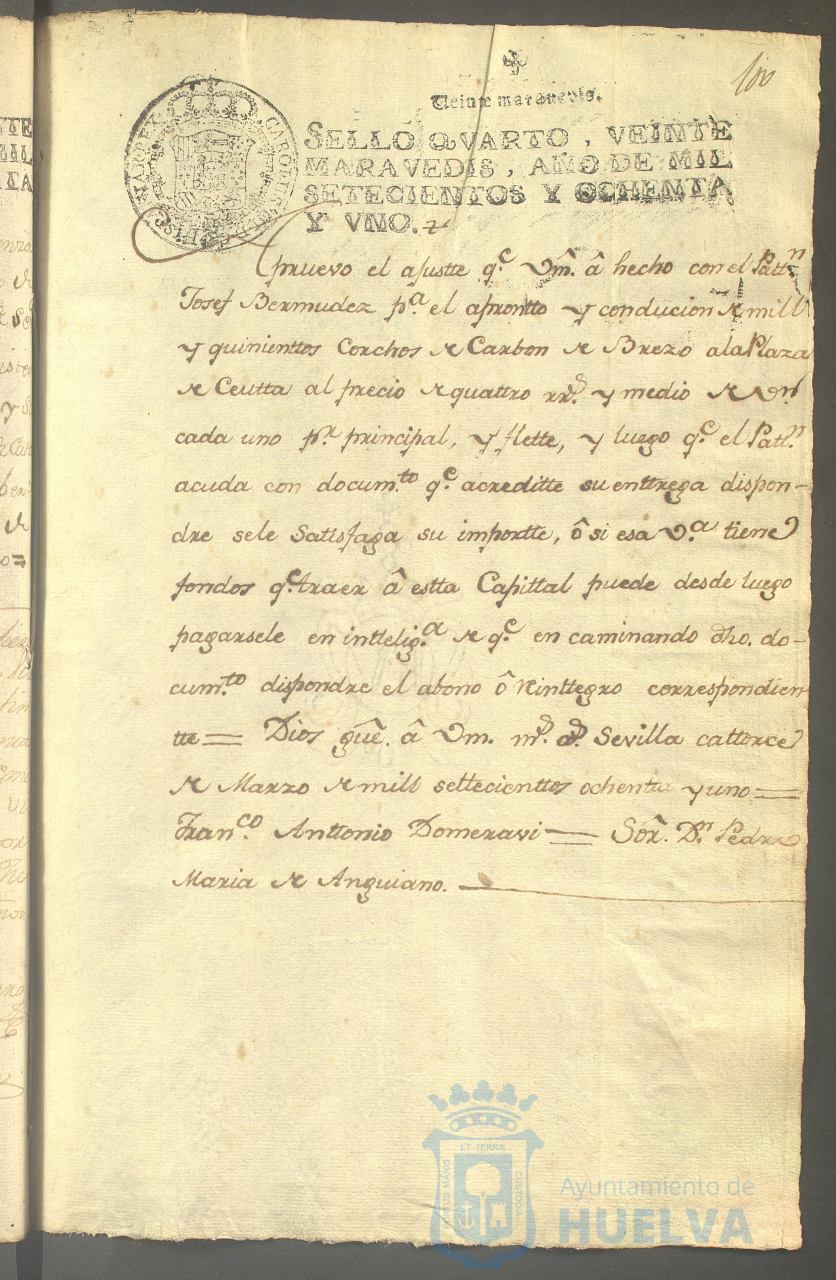 100
Veinte maravedis.
SELLO QVARTO, VEINTE
MARAVEDIS, AÑO DE MIL
SETECIENTOS Y OCHENTA
Y VNO.
Apruevo el ajustte q.e Vm. â hecho con el Patt.n
Josef Bermudez p.a el apromtto y conducion de mill
y quinienttos Corchos de Carbon de Brezo a la Plaza
de Ceutta al precio de quattro rr.s y medio de v.n
cada uno p.r principal, y flette, y luego q.e el Patt.n
acuda con docum.to q.e acreditte su enttrega dispon-
dre sele Satisfaga su importte, ô si esa V.a tiene
fondos q.e traer â estta Capittal puede desde luego
pagarsele en inttelig.a de q.e en caminando dho. do-
cum.to dispondre el abono ô Reinttegro correspondien
tte = Dios gûe. â Vm. m.s a.s Sevilla cattorce
de Marzo de mill settecienttos ochentta y uno =
Fran.co Anttonio Domeravi = Sôr. D.n Pedro
Maria de Anguiano.
ET TERRÆ
PORTUS MARIS
CUSTODIA
Ayuntamiento de
HUELVA